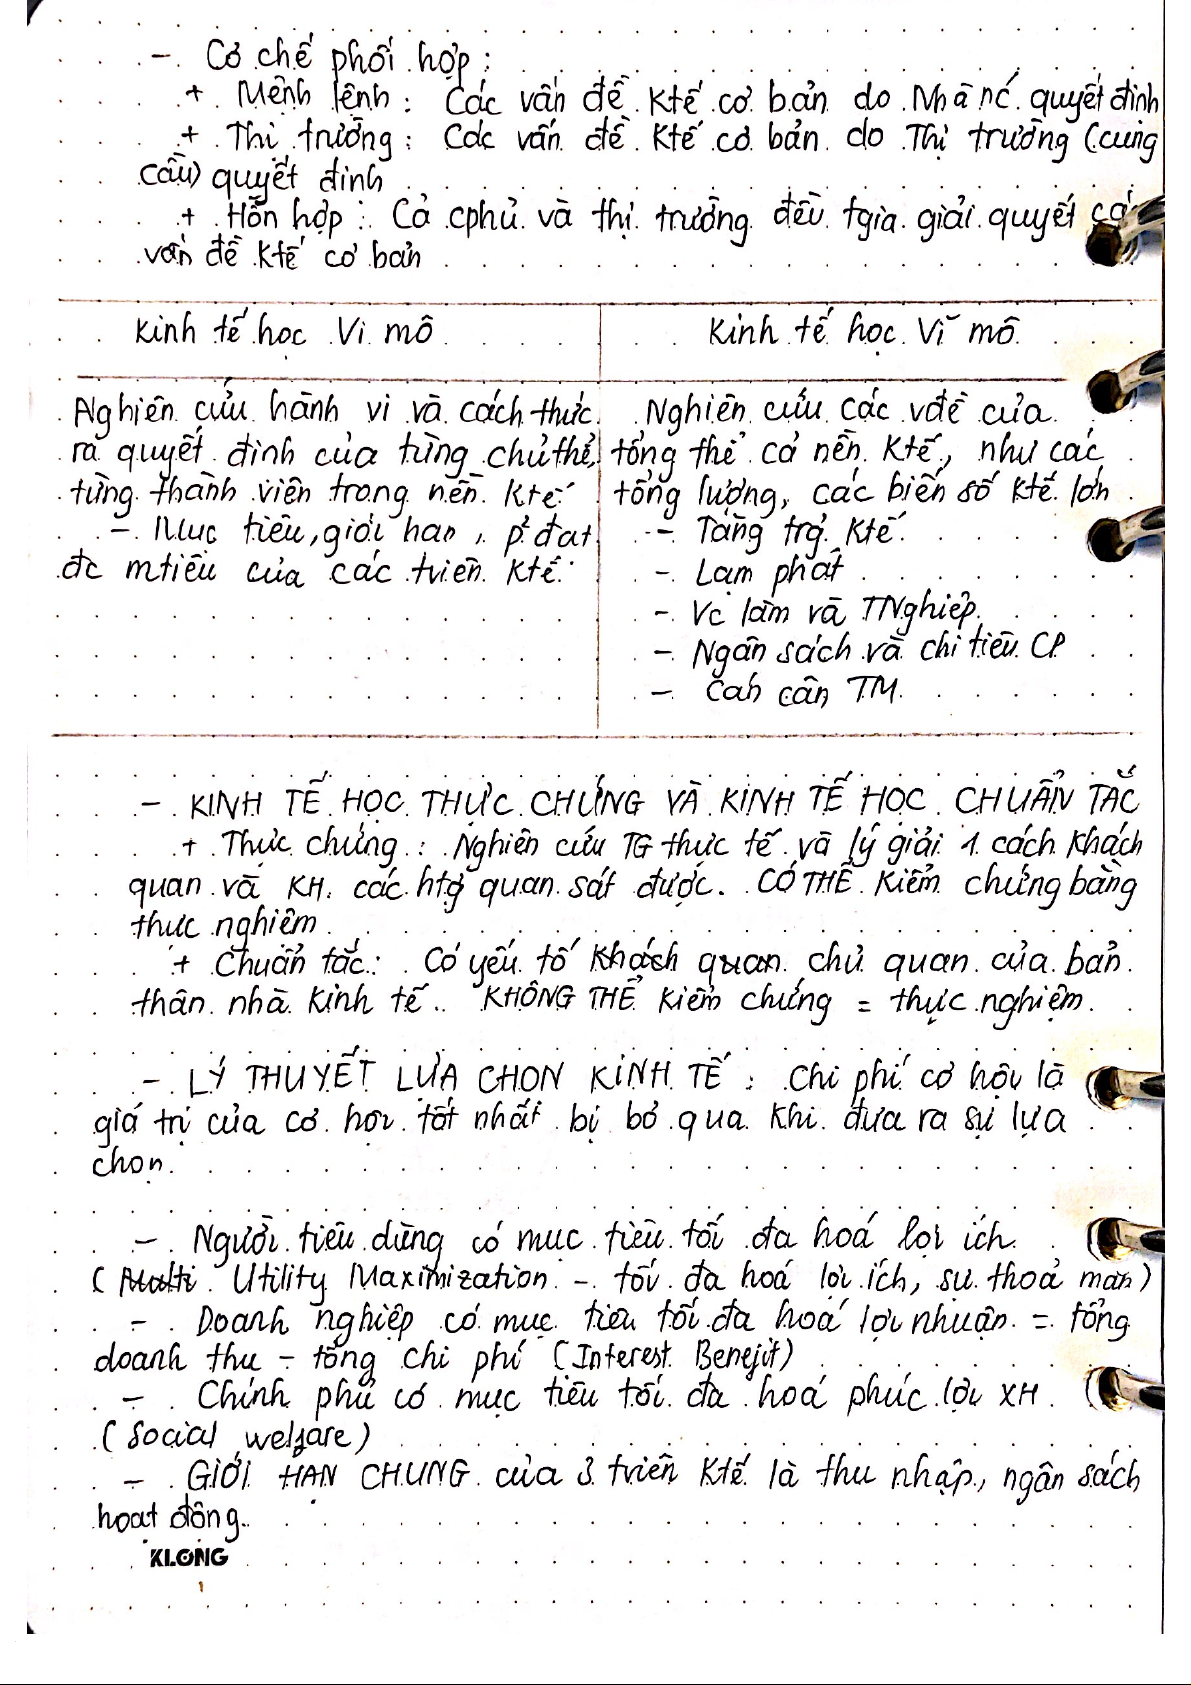 - Cơ chế phối hợp :
+ Mệnh lệnh : Các vấn đề Ktế cơ bản do Nhà nc quyết định
+ Thị trường : Các vấn đề Ktế cơ bản do Thị trường (cung
cầu) quyết định
+ Hỗn hợp : Cả cphủ và thị trường đều tgia giải quyết các
vấn đề Ktế cơ bản
Kinh tế học Vi mô
Nghiên cứu hành vi và cách thức
ra quyết định của từng chủ thể,
từng thành viên trong nền Ktế
- Mục tiêu, giới hạn, p² đạt
đc mtiêu của các tviên Ktế
Kinh tế học Vĩ mô
Nghiên cứu các vđề của
tổng thể cả nền Ktế, như các
tổng lượng, các biến số Ktế lớn
- Tăng trg Ktế
- Lạm phát
- Vc làm và TNghiệp
- Ngân sách và chi tiêu CP
- Cán cân TM
- KINH TẾ HỌC THỰC CHỨNG VÀ KINH TẾ HỌC CHUẨN TẮC
+ Thực chứng : Nghiên cứu TG thực tế và lý giải 1 cách Khách
quan và KH các htg quan sát được. CÓ THỂ Kiểm chứng bằng
thực nghiệm
+ Chuẩn tắc : Có yếu tố Khách quan chủ quan của bản
thân nhà Kinh tế. KHÔNG THỂ Kiểm chứng = thực nghiệm.
- LÝ THUYẾT LỰA CHỌN KINH TẾ : Chi phí cơ hội là
giá trị của cơ hội tốt nhất bị bỏ qua Khi đưa ra sự lựa
chọn.
- Người tiêu dùng có mục tiêu tối đa hoá lợi ích
( Utility Maximization - tối đa hoá lợi ích, sự thoả mãn)
- Doanh nghiệp có mục tiêu tối đa hoá lợi nhuận = tổng
doanh thu - tổng chi phí (Interest Benefit)
- Chính phủ có mục tiêu tối đa hoá phúc lợi XH (
(Social welfare)
- GIỚI HẠN CHUNG của 3 tviên Ktế là thu nhập, ngân sách
hoạt động.
KLONG